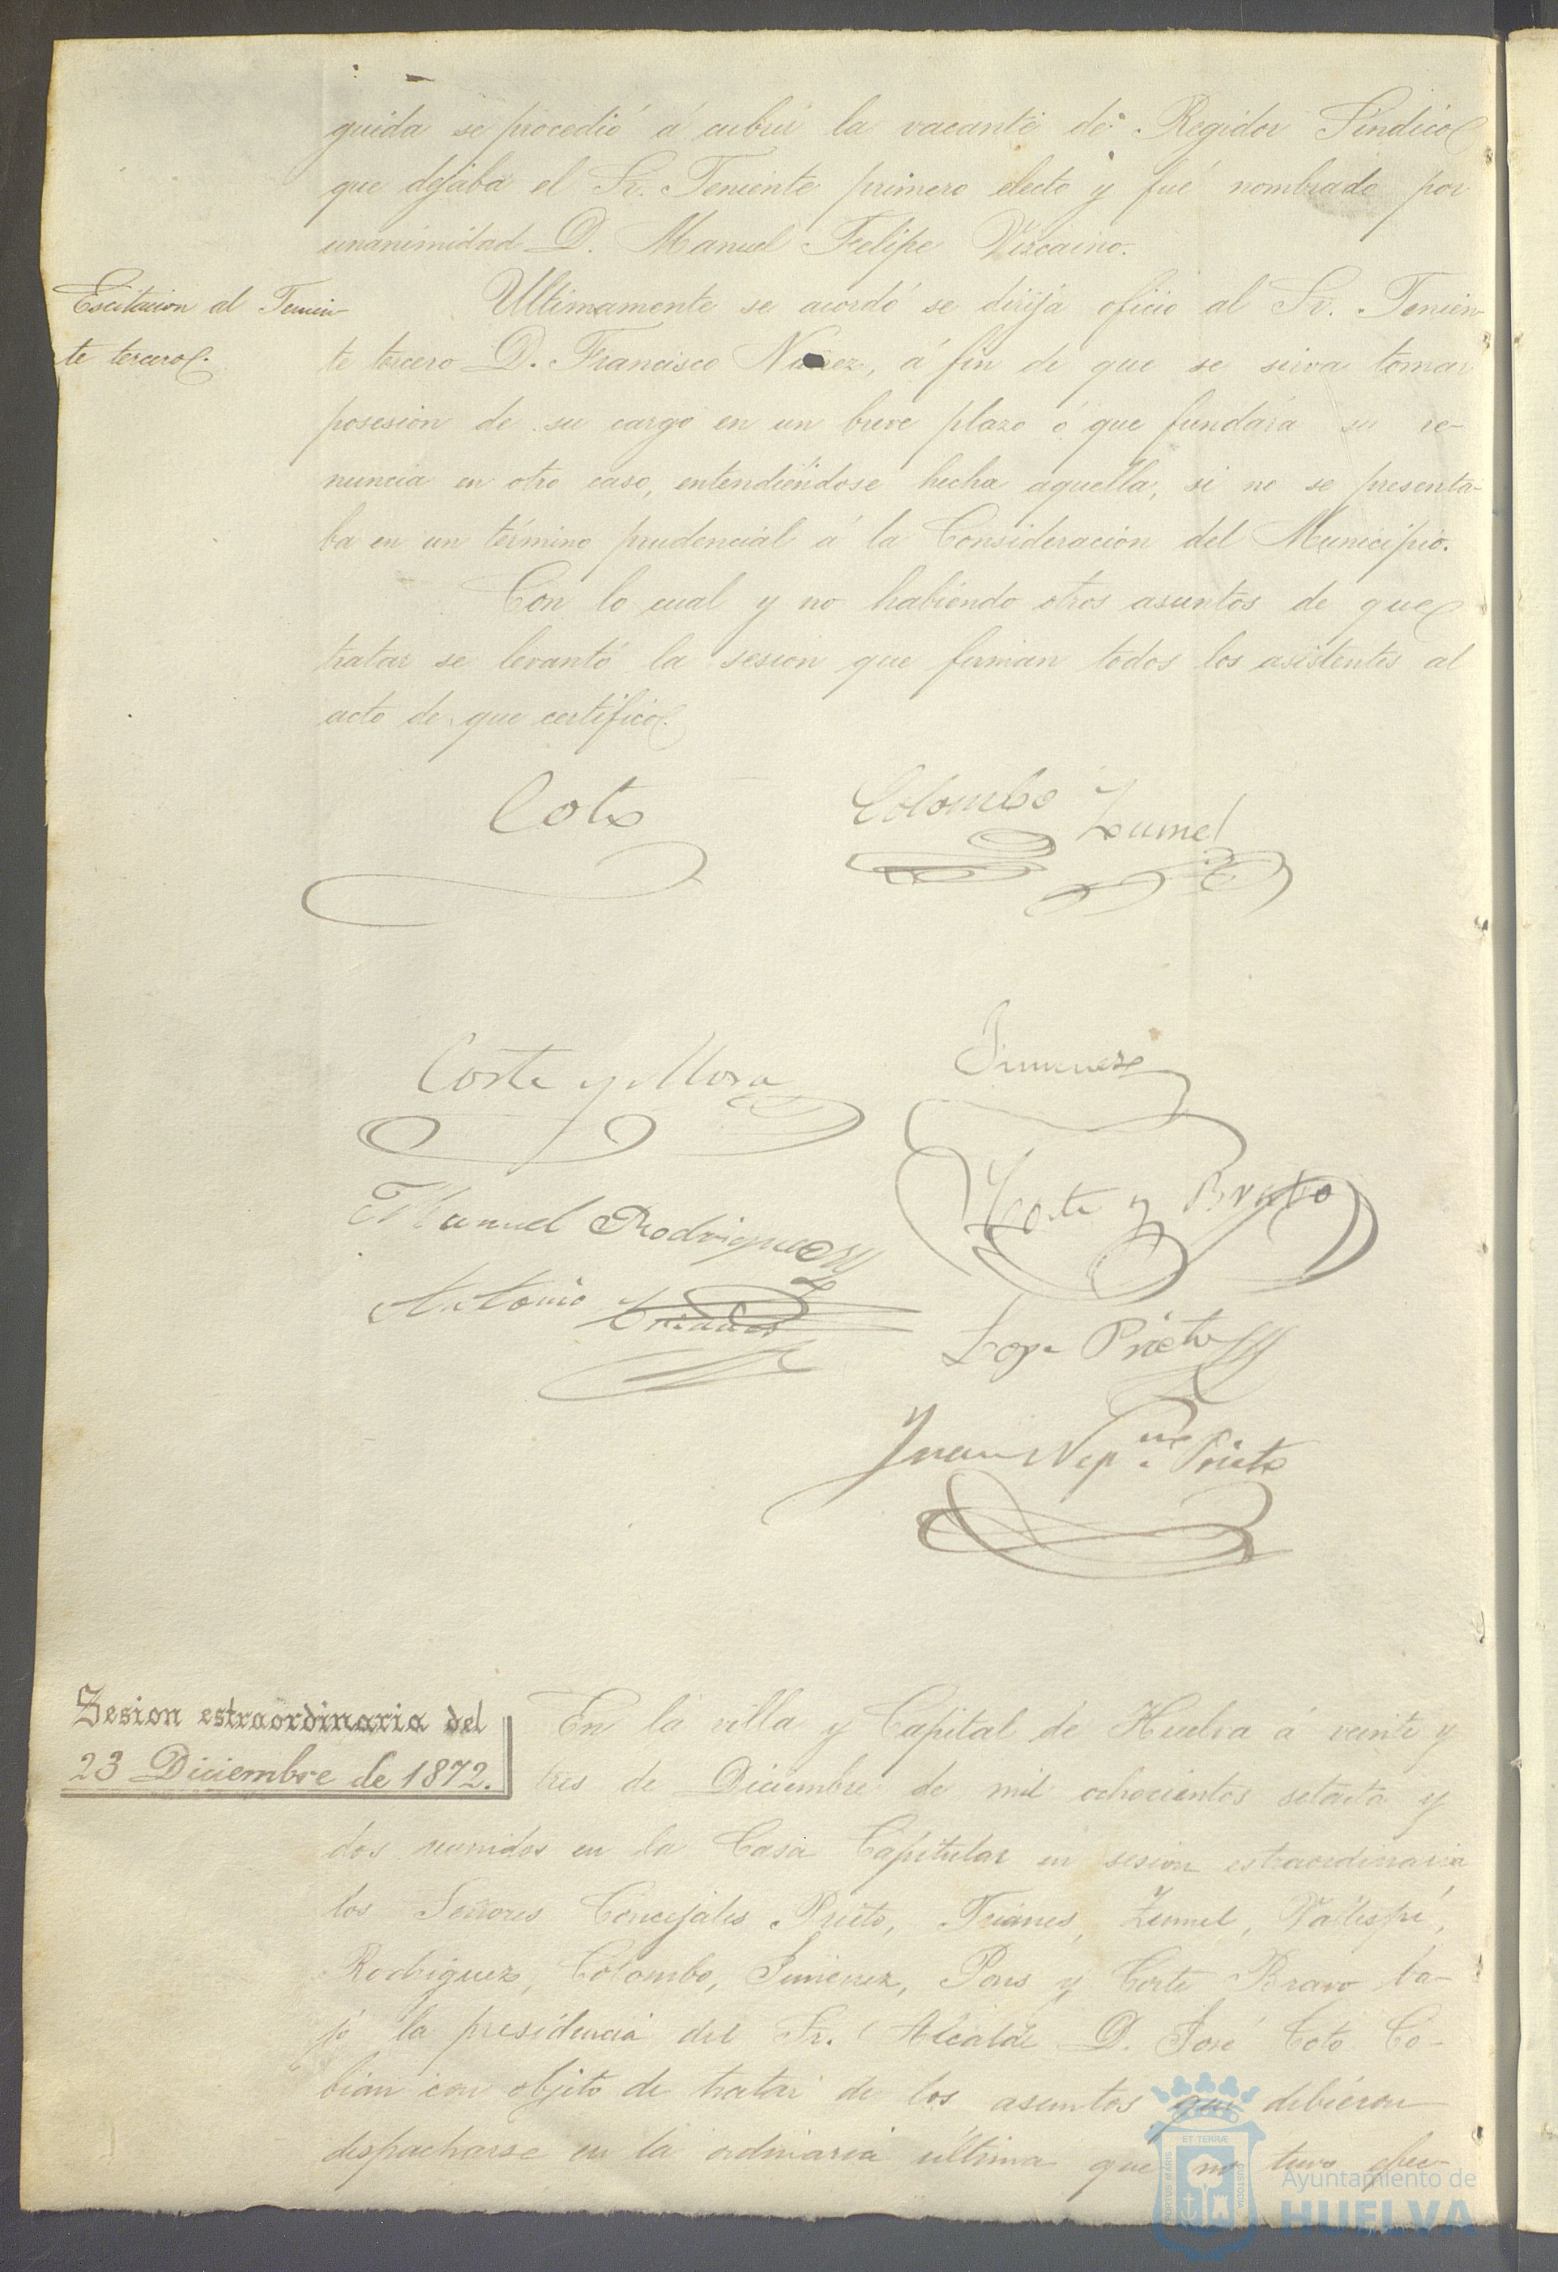 guida se procedió á cubrir la vacante de Regidor Síndico
que dejaba el Sr. Teniente primero electo y fué nombrado por
unanimidad D. Manuel Felipe Vizcaino.
Escitacion al Tenien-
te tercero.
Ultimamente se acordó se dirija oficio al Sr. Tenien-
te tercero D. Francisco Nuñez, á fin de que se sirva tomar
posesion de su cargo en un breve plazo ó que fundára su re-
nuncia en otro caso, entendiéndose hecha aquella, si no se presenta-
ba en un término prudencial á la Consideracion del Municipio.
Con lo cual y no habiendo otros asuntos de que
tratar se levantó la sesion que firman todos los asistentes al
acto de que certifico.
Coto
Colombo
Zumel
Corte y Mora
Jimenez
Corte y Bravo
Manuel Rodriguez
Antonio
Lope Prieto
Juan Nep.no Prieto
Sesion estraordinaria del
23 Diciembre de 1872.
En la villa y Capital de Huelva á veinte y
tres de Diciembre de mil ochocientos setenta y
dos reunidos en la Casa Capitular en sesion estraordinaria
los Señores Concejales Prieto, Trianes, Zumel, Vallespí,
Rodriguez, Colombo, Jimenez, Pons y Corte Bravo ba-
jo la presidencia del Sr. Alcalde D. José Coto Co-
bian con objeto de tratar de los asuntos que debieron
despacharse en la ordinaria última que no tuvo efec-
PORTUS MARIS
ET TERRÆ
CUSTODIA
Ayuntamiento de
HUELVA